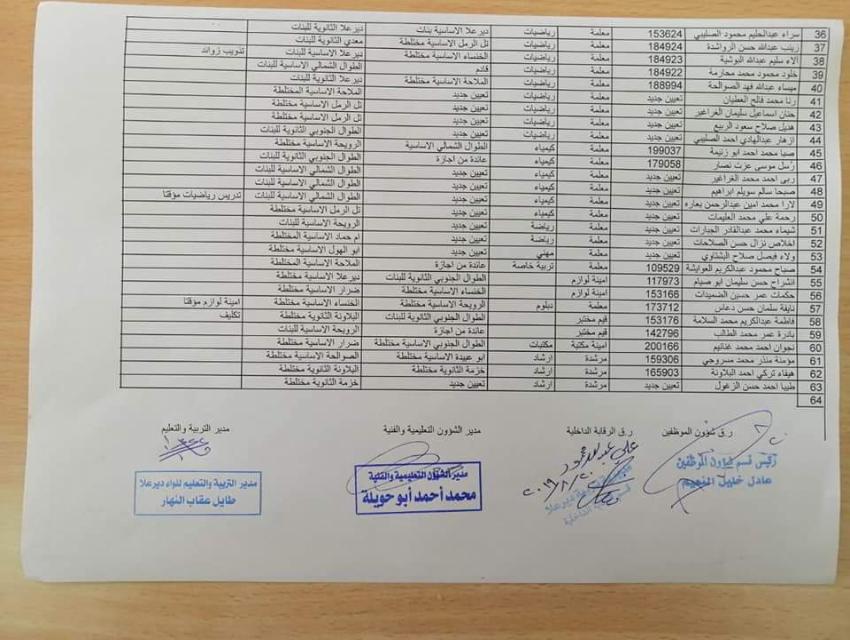 36 سراء عبدالحليم محمود الصليبي 153624 معلمة رياضيات ديرعلا الاساسية بنات ديرعلا الثانوية للبنات
37 زينب عبدالله حسن الرواشدة 184924 معلمة رياضيات تل الرمل الاساسية مختلطة معدي الثانوية للبنات
38 الاء سليم عبدالله البوشية 184923 معلمة رياضيات الخنساء الاساسية مختلطة ديرعلا الاساسية للبنات تذويب زوائد
39 خلود محمود محمد محارمة 184922 معلمة رياضيات قادم الطوال الشمالي الاساسية للبنات
40 ميساء عبدالله فهد الصوالحة 188994 معلمة رياضيات الملاحة الاساسية المختلطة ديرعلا الثانوية للبنات
41 رنا محمد فالح العطيان تعيين جديد معلمة رياضيات تعيين جديد الملاحة الاساسية المختلطة
42 حنان اسماعيل سليمان الغراغير تعيين جديد معلمة رياضيات تعيين جديد تل الرمل الاساسية مختلطة
43 هديل صلاح سعود الربيع تعيين جديد معلمة رياضيات تعيين جديد تل الرمل الاساسية مختلطة
44 ازهار عبدالهادي احمد الصليبي تعيين جديد معلمة رياضيات تعيين جديد الطوال الجنوبي الثانوية للبنات
45 صبا محمد احمد ابو زنيمة 199037 معلمة كيمياء الطوال الشمالي الاساسية الرويحة الاساسية المختلطة
46 رسل موسى عزت نصار 179058 معلمة كيمياء عائدة من اجازة الطوال الجنوبي الثانوية للبنات
47 ربى احمد محمد الغراغير تعيين جديد معلمة كيمياء تعيين جديد الطوال الشمالي الاساسية للبنات
48 صبحا سالم سويلم ابراهيم تعيين جديد معلمة كيمياء تعيين جديد الطوال الشمالي الاساسية للبنات
49 لارا محمد امين عبدالرحمن بعاره تعيين جديد معلمة كيمياء تعيين جديد الطوال الشمالي الاساسية للبنات تدريس رياضيات مؤقتا
50 رحمة علي محمد العليمات تعيين جديد معلمة كيمياء تعيين جديد تل الرمل الاساسية مختلطة
51 شيماء محمد عبدالقادر الجبارات تعيين جديد معلمة رياضة تعيين جديد الرويحة الاساسية للبنات
52 اخلاص نزال حسن الصلاحات تعيين جديد معلمة رياضة تعيين جديد ام حماد الاساسية المختلطة
53 ولاء فيصل صلاح البشتاوي تعيين جديد معلمة مهني تعيين جديد ابو الهول الاساسية المختلطة
54 صباح محمود عبدالكريم العوايشة 109529 معلمة تربية خاصة عائدة من اجازة الملاحة الاساسية المختلطة
55 انشراح حسن سليمان ابو صيام 117973 امينة لوازم الطوال الجنوبي الثانوية للبنات ديرعلا الاساسية مختلطة
56 حكمات عمر حسين الضميدات 153166 امينة لوازم الخنساء الاساسية مختلطة ضرار الاساسية مختلطة
57 نايفة سلمان حسن دعاس 173712 معلمة دبلوم الرويحة الاساسية مختلطة الخنساء الاساسية مختلطة امينة لوازم مؤقتا
58 فاطمة عبدالكريم محمد السلامة 153176 قيم مختبر الطوال الجنوبي الثانوية للبنات البلاونة الثانوية مختلطة تكليف
59 بادرة عمر محمد الطالب 142796 قيم مختبر عائدة من اجازة الرويحة الاساسية للبنات
60 نجوان احمد محمد غنانيم 200166 امينة مكتبة مكتبات الطوال الجنوبي الاساسية مختلطة ضرار الاساسية مختلطة
61 مؤمنة منذر محمد مسروجي 159306 مرشدة ارشاد ابو عبيدة الاساسية مختلطة الصوالحة الاساسية مختلطة
62 هيفاء تركي احمد البلاونة 165903 مرشدة ارشاد خزمة الثانوية مختلطة البلاونة الثانوية مختلطة
63 طيبا احمد حسن الزغول تعيين جديد مرشدة ارشاد تعيين جديد خزمة الثانوية مختلطة
64
ر.ق شؤون الموظفين ر.ق الرقابة الداخلية مدير الشؤون التعليمية والفنية مدير التربية والتعليم
رئيس قسم شؤون الموظفين
عادل خليل النعيم
مدير الشؤون التعليمية والفنية
محمد أحمد أبو حويلة
مدير التربية والتعليم للواء ديرعلا
طايل عقاب النهار